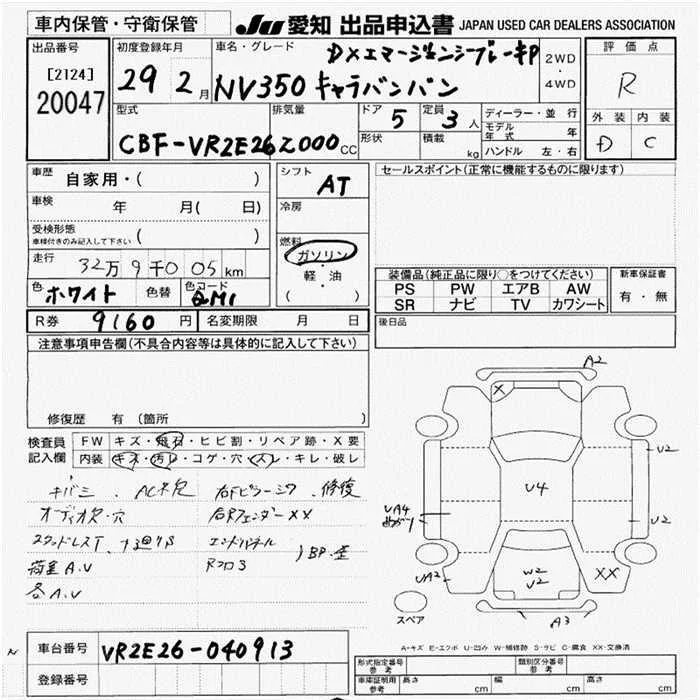 車内保管・守衛保管
JU 愛知 出品申込書 JAPAN USED CAR DEALERS ASSOCIATION
出品番号
[2124]
20047
初度登録年月
29 2月
車名・グレード
DXエマージェンシーブレーキP
NV350 キャラバンバン
2WD
・
4WD
評価点
R
外装 内装
D C
型式
CBF-VR2E26
排気量
2000cc
ドア
5
定員
3人
形状
積載
kg
ディーラー・並行
モデル年式 年
ハンドル 左・右
車歴
自家用・( )
車検
年 月( 日)
受検形態
車検付きのみ記入して下さい ( )
走行
32万9千005km
色
ホワイト
色替
色コード
QM1
シフト
AT
冷房
燃料
ガソリン
・
軽・油
( )
セールスポイント(正常に機能するものに限ります)
装備品(純正品に限り○をつけてください)
PS PW エアB AW
SR ナビ TV カワシート
新車保証書
有・無
R券 9160円 名変期限 月 日
後日品
注意事項申告欄(不具合内容等は具体的に記入して下さい)
修復歴 有(箇所 )
検査員
記入欄
FW キズ・飛石・ヒビ割・リペア跡・X要
内装 キズ・汚レ・コゲ・穴・スレ・キレ・破レ
キバミ、AC不良
オーディオ欠・穴
スタッドレスT、
荷室A.V
各A.V
右Fピラーミワ、修復
右RフェンダーXX
エンドパネル
Rフロ3
BP・歪
A2
X
U2
U4
UA4
曲がり
U2
UA2
W2
U2
XX
A3
スペア
A-キズ E-エクボ U-凹み W-補修跡 S-サビ C-腐食 XX-交換済
車台番号 VR2E26-040913
登録番号
形式指定番号
参考
類別区分番号
参考
車庫証明用
参考
長さ cm 幅 cm 高さ cm